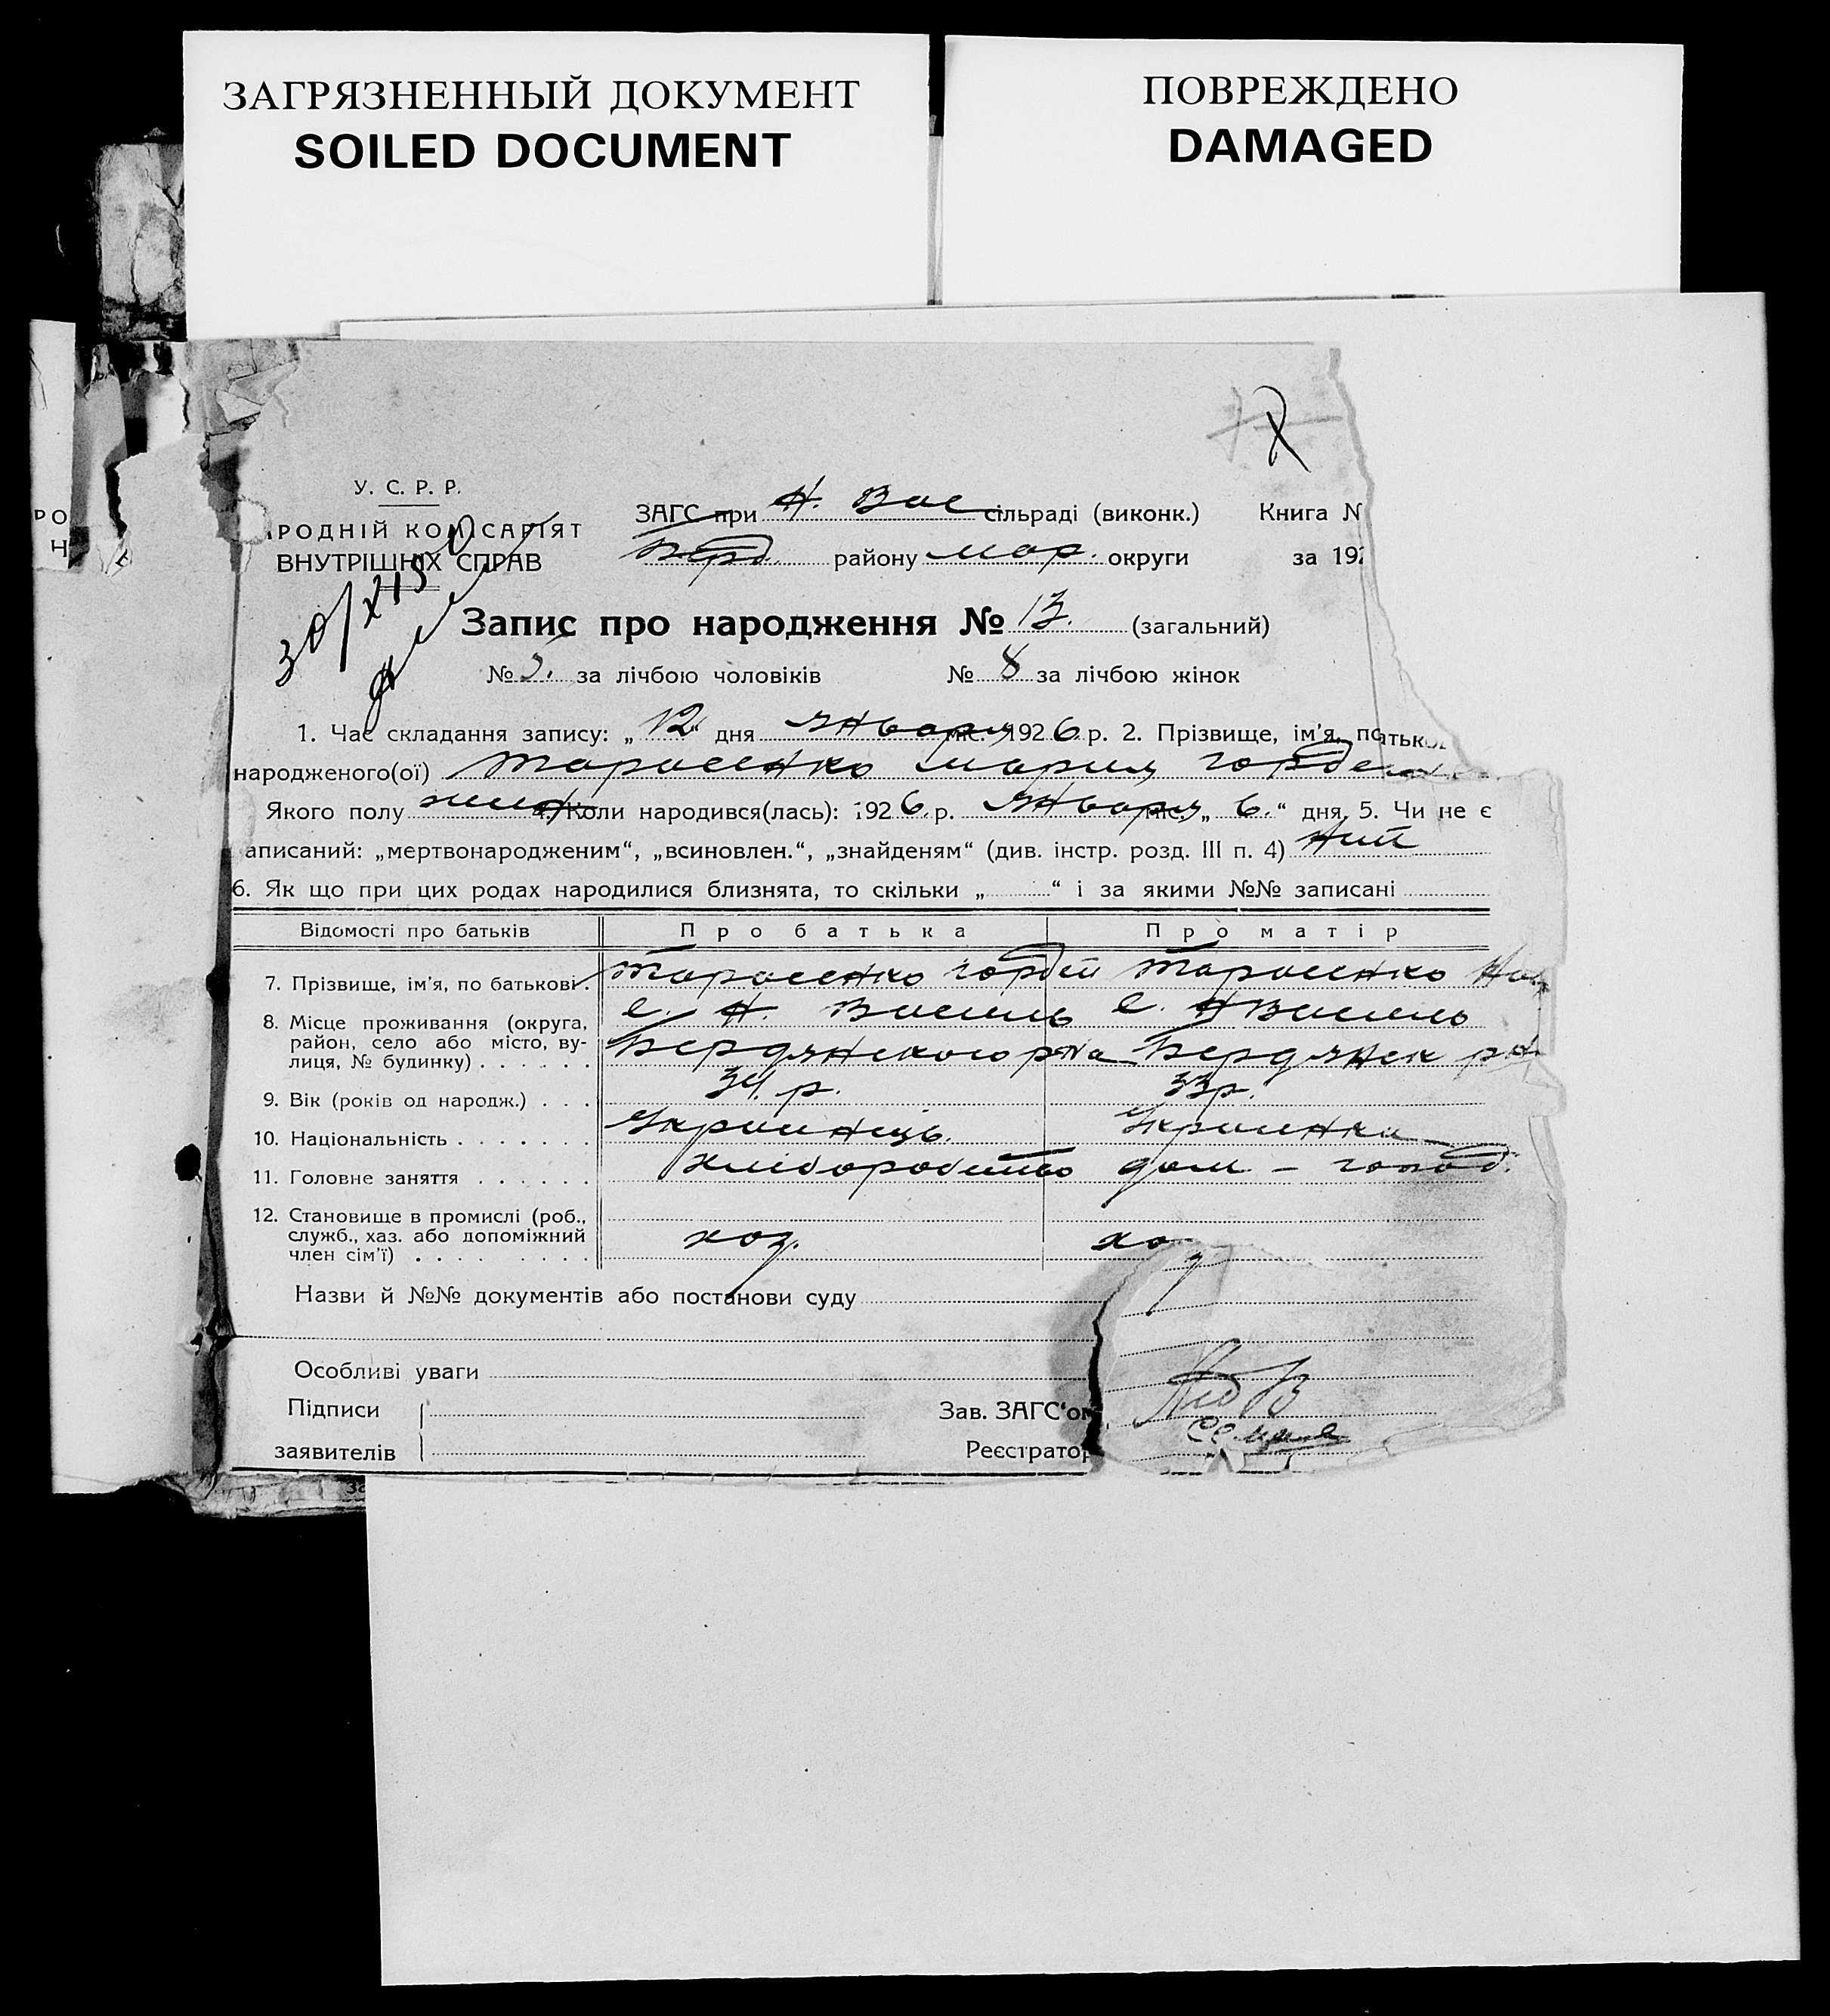 ЗАГРЯЗНЕННЫЙ ДОКУМЕНТ
SOILED DOCUMENT
ПОВРЕЖДЕНО
DAMAGED
РО
Н
У. С. Р. Р.
РОДНІЙ КОМІСАРІЯТ
ВНУТРІШНІХ СПРАВ
ЗАГС при Н. Вас сільраді (виконк.) Книга №
Берд. району Мар. округи за 192
Запис про народження № 13. (загальний)
№ 5. за лічбою чоловіків № 8 за лічбою жінок
1. Час складання запису: „12“ дня Января міс. 1926 р. 2. Прізвище, ім'я, по батьков
народженого(ої) Тарасенко Мария Горде
Якого полу жин 4. Коли народився(лась): 1926 р. Января міс. „6.“ дня 5. Чи не є
аписаний: „мертвонародженим“, „всиновлен.“, „знайденям“ (див. інстр. розд. III п. 4) Ний
6. Як що при цих родах народилися близнята, то скільки „ “ і за якими №№ записані
Відомості про батьків Про батька Про матір
7. Прізвище, ім'я, по батькові. Тарасенко Гордій Тарасенко
8. Місце проживання (округа, район, село або місто, вулиця, № будинку) с. Н. Василь с. Н Василь
Бердянского р-на Бердянск р-н
9. Вік (років од народж.) 34. р. 33 р.
10. Національність Украинець. Украинка
11. Головне заняття хлиборобство дом - господ.
12. Становище в промислі (роб., служб., хаз. або допоміжний член сім'ї) хоз. хоз
Назви й №№ документів або постанови суду
Особливі уваги
Підписи
заявителів
Зав. ЗАГС'ом
Реєстратор